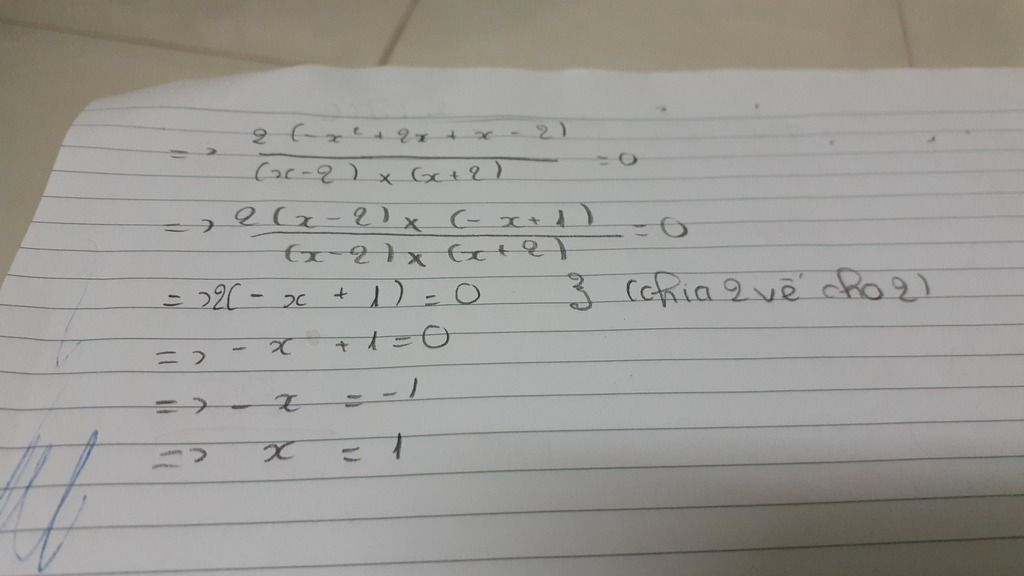 => 2(-x² + 2x + x - 2) / (x-2) × (x+2) = 0
=> 2(x-2) × (-x+1) / (x-2) × (x+2) = 0
=> 2(-x + 1) = 0 } (chia 2 vế cho 2)
=> -x + 1 = 0
=> -x = -1
=> x = 1